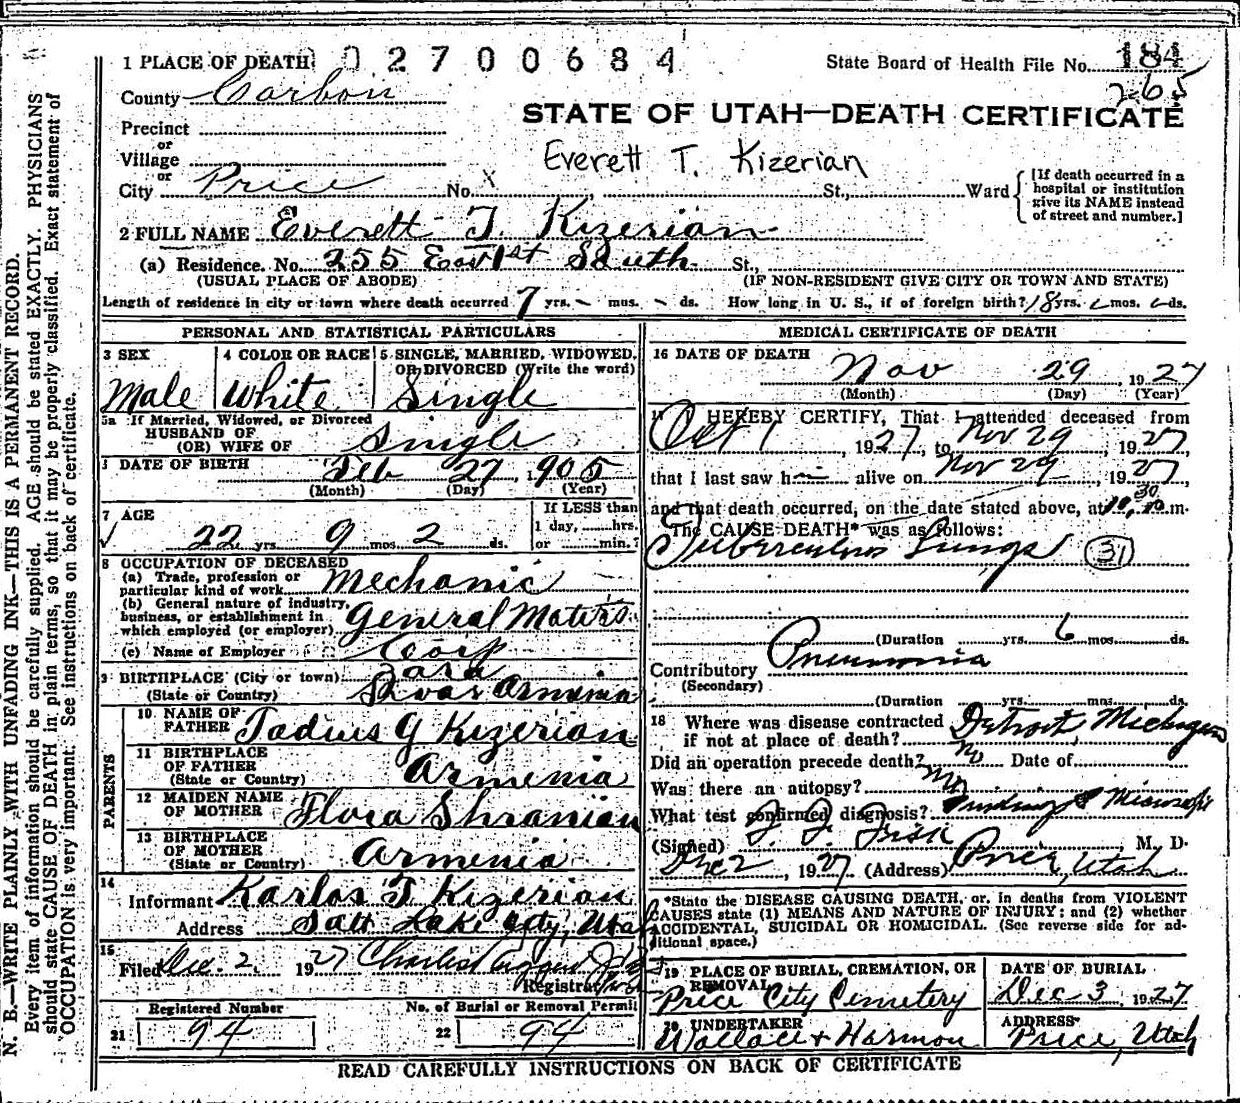 1 PLACE OF DEATH 0 2 7 0 0 6 8 4
State Board of Health File No. 184
265
County Carbon
STATE OF UTAH—DEATH CERTIFICATE
Precinct
or
Village
Everett T. Kizerian
or
City Price No. X St., Ward
[If death occurred in a
hospital or institution
give its NAME instead
of street and number.]
2 FULL NAME Everett T. Kizerian
(a) Residence. No. 255 East 1st South St.,
(USUAL PLACE OF ABODE) (IF NON-RESIDENT GIVE CITY OR TOWN AND STATE)
Length of residence in city or town where death occurred 7 yrs. - mos. - ds. How long in U. S., if of foreign birth? 18 yrs. mos. ds.
PERSONAL AND STATISTICAL PARTICULARS
3 SEX
Male
4 COLOR OR RACE
White
5 SINGLE, MARRIED, WIDOWED,
OR DIVORCED (Write the word)
Single
5a If Married, Widowed, or Divorced
HUSBAND OF
(OR) WIFE OF Single
DATE OF BIRTH Feb 27 1905
(Month) (Day) (Year)
7 AGE
22 yrs. 9 mos. 2 ds.
If LESS than
1 day, hrs.
or min.?
8 OCCUPATION OF DECEASED
(a) Trade, profession or
particular kind of work Mechanic
(b) General nature of industry,
business, or establishment in
which employed (or employer) General Motors
(c) Name of Employer Corp
9 BIRTHPLACE (City or town) Zara
(State or Country) Sivas Armenia
PARENTS
10 NAME OF
FATHER Tadius G Kizerian
11 BIRTHPLACE
OF FATHER
(State or Country) Armenia
12 MAIDEN NAME
OF MOTHER Flora Shranian
13 BIRTHPLACE
OF MOTHER
(State or Country) Armenia
14
Informant Karlos T Kizerian
Address Salt Lake City, Utah
15
Filed Dec. 2, 1927 Charles
Registrar
Registered Number
21 94
No. of Burial or Removal Permit
22 94
MEDICAL CERTIFICATE OF DEATH
16 DATE OF DEATH
Nov 29, 1927
(Month) (Day) (Year)
I HEREBY CERTIFY, That I attended deceased from
Oct 1, 1927, to Nov 29, 1927
that I last saw h alive on Nov 29, 1927
and that death occurred, on the date stated above, at 10:30 m.
The CAUSE DEATH* was as follows:
Tuberculous Lungs 31
(Duration yrs. 6 mos. ds.
Contributory Pneumonia
(Secondary)
(Duration yrs. mos. ds.
18 Where was disease contracted
if not at place of death? Detroit, Michigan
Did an operation precede death? no Date of
Was there an autopsy? No
What test confirmed diagnosis?
(Signed) M. D.
Dec 2, 1927 (Address) Price, Utah
*State the DISEASE CAUSING DEATH, or, in deaths from VIOLENT
CAUSES state (1) MEANS AND NATURE OF INJURY; and (2) whether
ACCIDENTAL, SUICIDAL OR HOMICIDAL. (See reverse side for ad-
ditional space.)
19 PLACE OF BURIAL, CREMATION, OR
REMOVAL
Price City Cemetery
DATE OF BURIAL
Dec 3, 1927
20 UNDERTAKER
Wallace & Harmon
ADDRESS
Price, Utah
READ CAREFULLY INSTRUCTIONS ON BACK OF CERTIFICATE
N. B.—WRITE PLAINLY WITH UNFADING INK—THIS IS A PERMANENT RECORD.
Every item of information should be carefully supplied. AGE should be stated EXACTLY. PHYSICIANS
should state CAUSE OF DEATH in plain terms, so that it may be properly classified. Exact statement of
OCCUPATION is very important. See instructions on back of certificate.